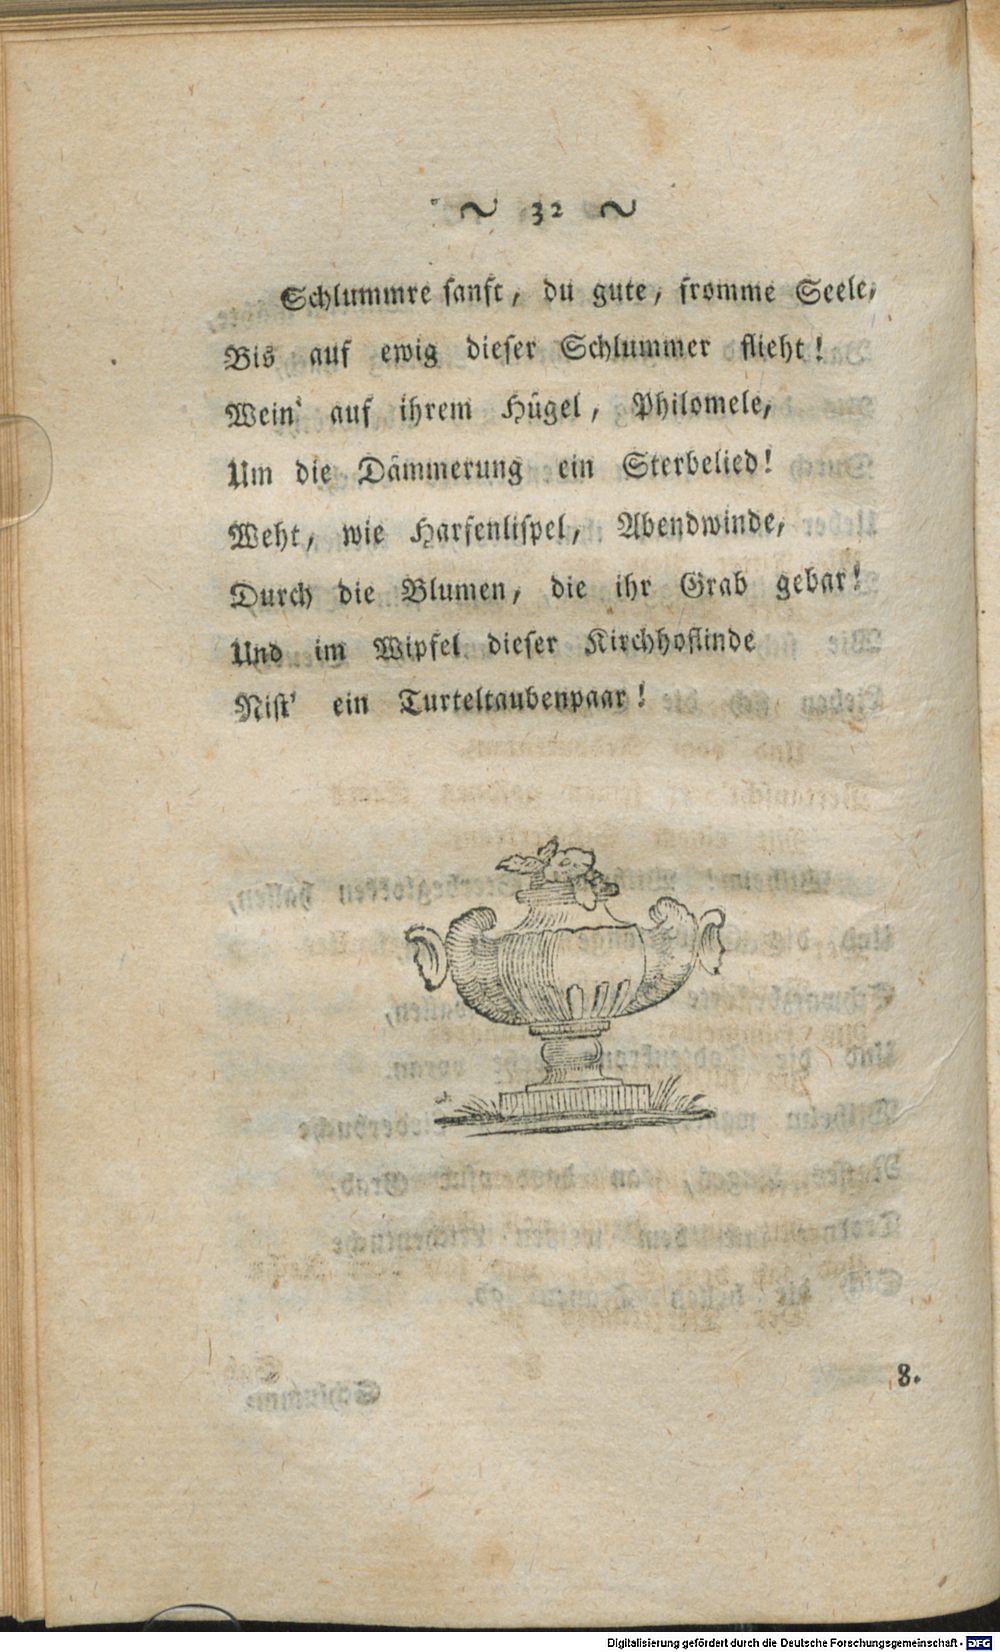 ~ 32 ~
Schlummre sanft, du gute, fromme Seele,
Bis auf ewig dieser Schlummer flieht!
Wein' auf ihrem Hügel, Philomele,
Um die Dämmerung ein Sterbelied!
Weht, wie Harfenlispel, Abendwinde,
Durch die Blumen, die ihr Grab gebar!
Und im Wipfel dieser Kirchhoflinde
Nist' ein Turteltaubenpaar!
8.
Digitalisierung gefördert durch die Deutsche Forschungsgemeinschaft - DFG